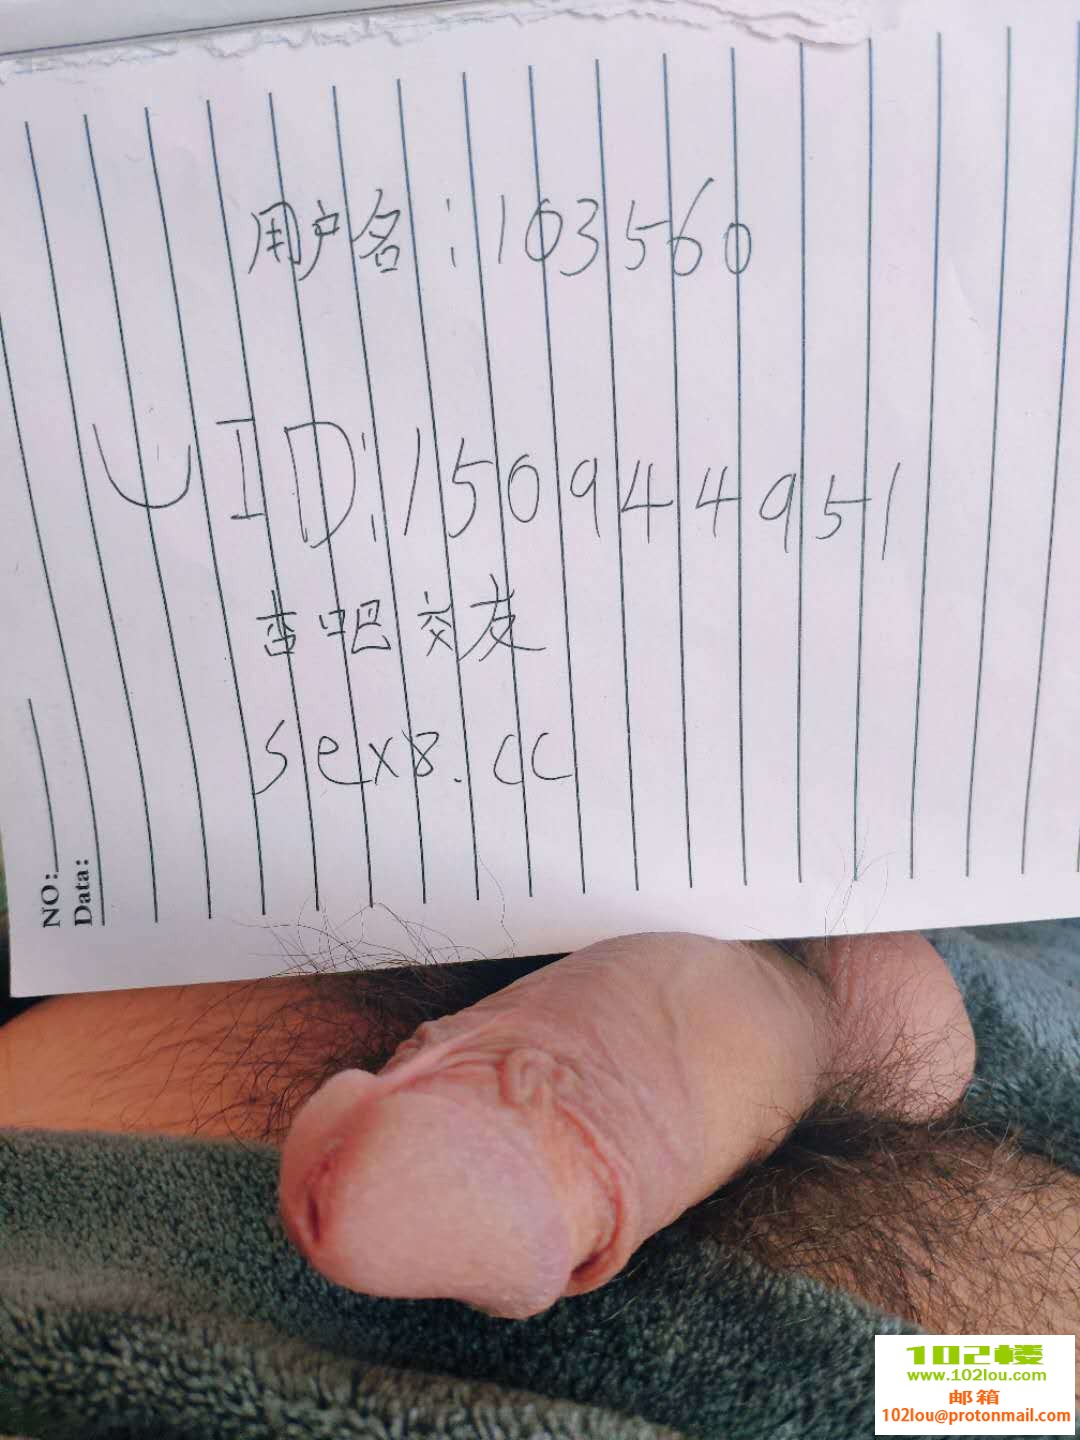 用户名：103560
UID:150944951
杏吧交友
sex8.cc
NO:
Data:
102楼
www.102lou.com
邮箱
102lou@protonmail.com